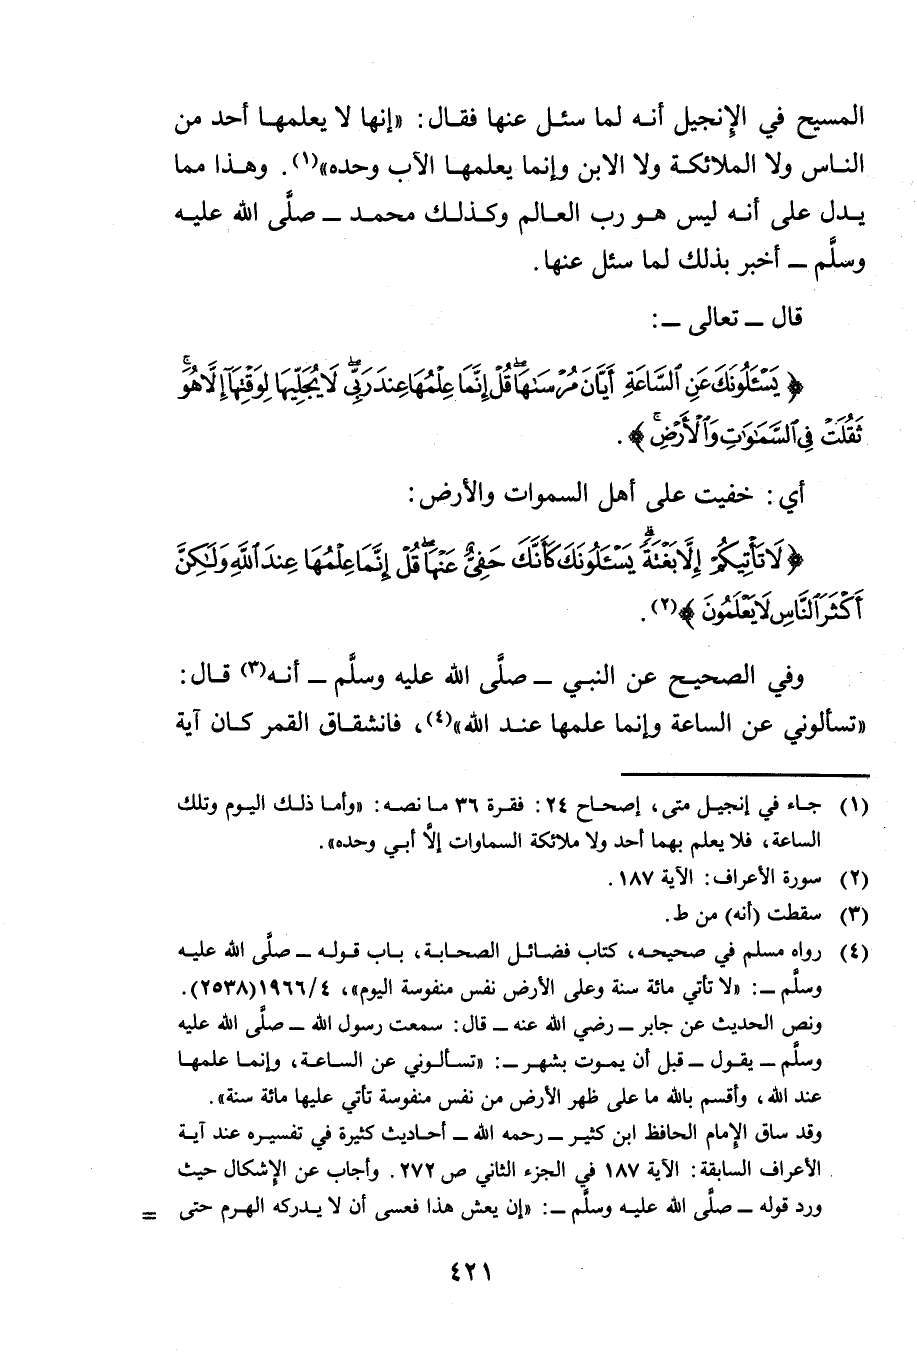 المسيح في الإنجيل أنه لما سئل عنها فقال: «إنها لا يعلمها أحد من
الناس ولا الملائكة ولا الابن وإنما يعلمها الآب وحده»(١). وهذا مما
يدل على أنه ليس هو رب العالم وكذلك محمد ــ صلَّى الله عليه
وسلَّم ــ أخبر بذلك لما سئل عنها.
قال ــ تعالى ــ:
﴿ يَسْـَٔلُونَكَ عَنِ ٱلسَّاعَةِ أَيَّانَ مُرْسَىٰهَا ۖ قُلْ إِنَّمَا عِلْمُهَا عِندَ رَبِّى ۖ لَا يُجَلِّيهَا لِوَقْتِهَآ إِلَّا هُوَ ۚ
ثَقُلَتْ فِى ٱلسَّمَـٰوَٰتِ وَٱلْأَرْضِ ۚ ﴾.
أي: خفيت على أهل السموات والأرض:
﴿ لَا تَأْتِيكُمْ إِلَّا بَغْتَةً ۗ يَسْـَٔلُونَكَ كَأَنَّكَ حَفِىٌّ عَنْهَا ۖ قُلْ إِنَّمَا عِلْمُهَا عِندَ ٱللَّهِ وَلَـٰكِنَّ
أَكْثَرَ ٱلنَّاسِ لَا يَعْلَمُونَ ﴾(٢).
وفي الصحيح عن النبي ــ صلَّى الله عليه وسلَّم ــ أنه(٣) قال:
«تسألوني عن الساعة وإنما علمها عند الله»(٤)، فانشقاق القمر كان آية
(١) جاء في إنجيل متى، إصحاح ٢٤: فقرة ٣٦ ما نصه: «وأما ذلك اليوم وتلك
الساعة، فلا يعلم بهما أحد ولا ملائكة السماوات إلَّا أبي وحده».
(٢) سورة الأعراف: الآية ١٨٧.
(٣) سقطت (أنه) من ط.
(٤) رواه مسلم في صحيحه، كتاب فضائل الصحابة، باب قوله ــ صلَّى الله عليه
وسلَّم ــ: «لا تأتي مائة سنة وعلى الأرض نفس منفوسة اليوم»، ١٩٦٦/٤(٢٥٣٨).
ونص الحديث عن جابر ــ رضي الله عنه ــ قال: سمعت رسول الله ــ صلَّى الله عليه
وسلَّم ــ يقول ــ قبل أن يموت بشهر ــ: «تسألوني عن الساعة، وإنما علمها
عند الله، وأقسم بالله ما على ظهر الأرض من نفس منفوسة تأتي عليها مائة سنة».
وقد ساق الإمام الحافظ ابن كثير ــ رحمه الله ــ أحاديث كثيرة في تفسيره عند آية
الأعراف السابقة: الآية ١٨٧ في الجزء الثاني ص ٢٧٢. وأجاب عن الإشكال حيث
ورد قوله ــ صلَّى الله عليه وسلَّم ــ: «إن يعش هذا فعسى أن لا يدركه الهرم حتى =
٤٢١